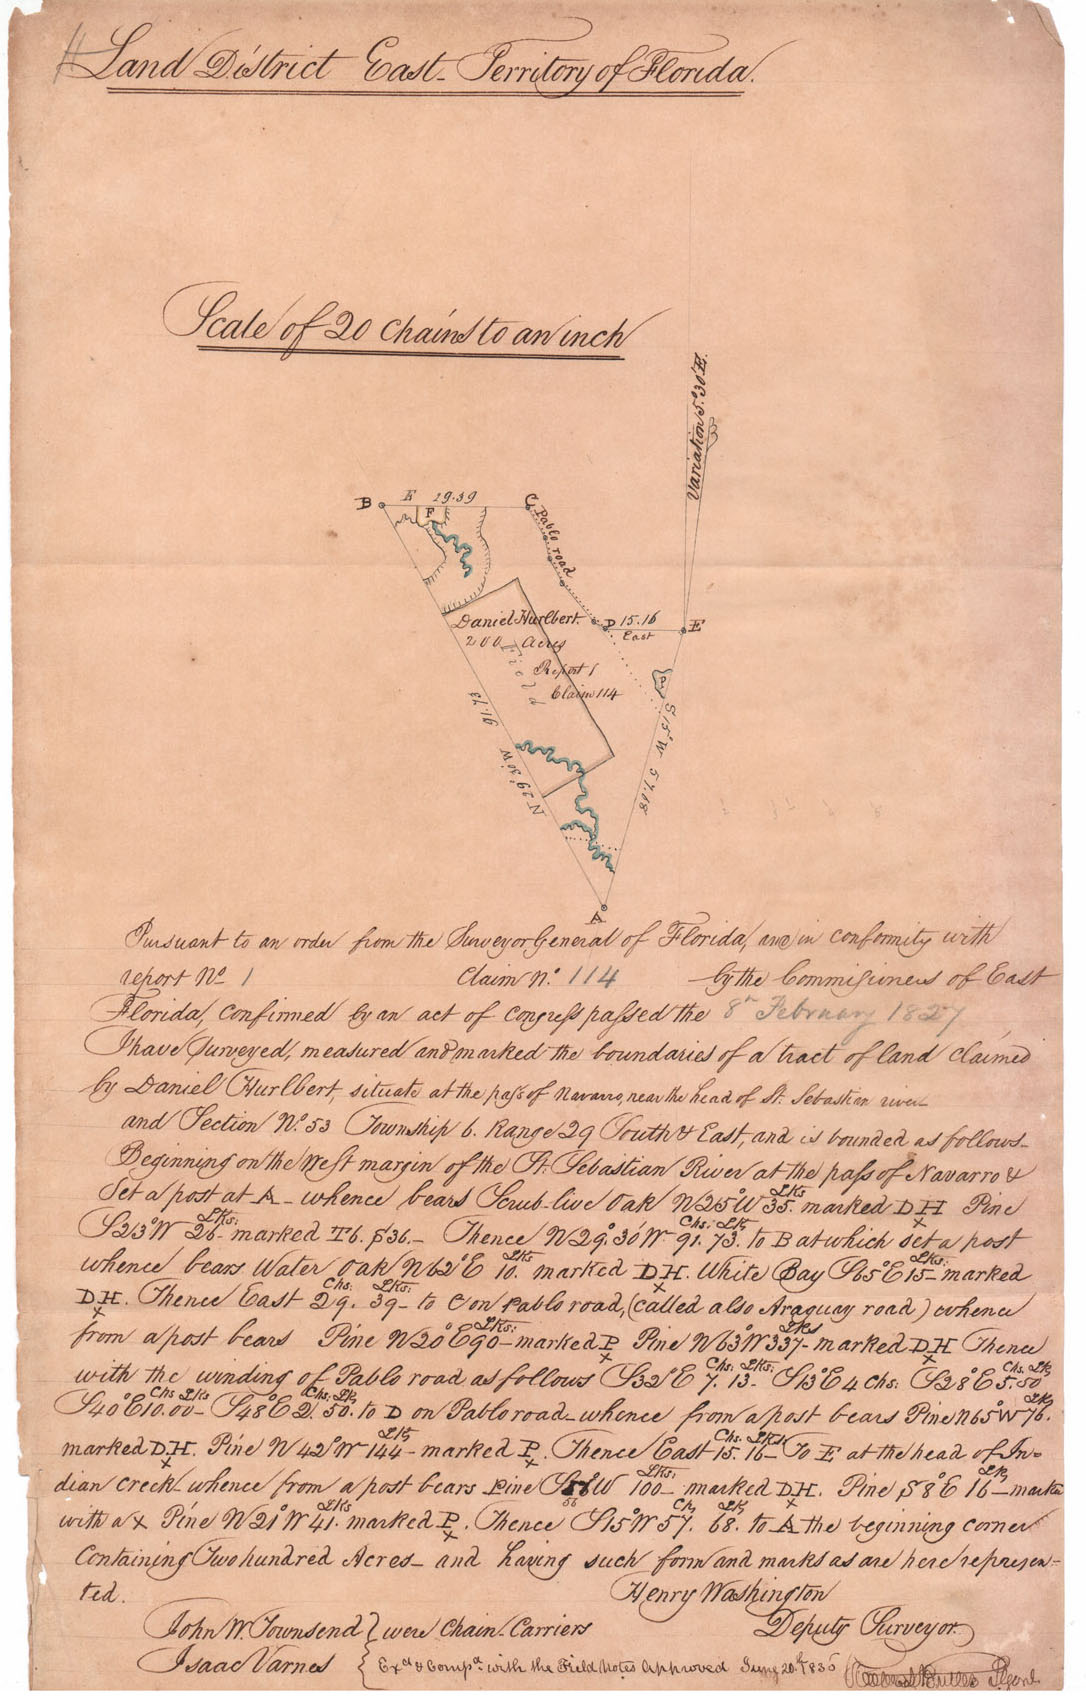 Land District East Territory of Florida.
Scale of 20 chains to an inch
Variation 5°.30' E.
B E 29.39 C
F
Pablo road
Daniel Hurlbert.
200 Acres
Field
Report 1
Claim 114
D 15.16 E
East
S 15° W 57.68
91.73
N 29°.30' W
A
Pursuant to an order from the Surveyor General of Florida, and in conformity with
report No 1 Claim No. 114 by the Commissioners of East
Florida, confirmed by an act of congress passed the 8th February 1827
I have surveyed, measured and marked the boundaries of a tract of land claimed
by Daniel Hurlbert, situate at the pass of Navarro, near the head of St. Sebastian river
and Section No. 53 Township 6. Range 29 South & East, and is bounded as follows-
Beginning on the West margin of the St. Sebastian River at the pass of Navarro &
Set a post at A - whence bears Scrub live Oak N25°W 35. Lks marked D H X Pine
S23°W 26 Lks: marked T6. S36.- Thence N29°.30'W 91. Chs: 73. Lk to B at which set a post
whence bears Water Oak N62°E 10. Lks marked D.H. X White Bay S65°E 15 Lks: marked
D.H. X Thence East 29. Chs: 39 Lks: to C on Pablo road, (called also Araguay road) whence
from a post bears Pine N20°E 90 Lks: marked P X Pine N63°W 337 Lks marked D.H X Thence
with the winding of Pablo road as follows S32°E 7. Chs: 13 Lks: S13°E 4 Chs: S28°E 5. Chs. 50 Lk
S40°E 10.00 Chs Lks S48°E 2. Chs: 50. Lk. to D on Pablo road - whence from a post bears Pine N65°W 76. Lks
marked D.H. X Pine N42°W 144 Lk marked P. X Thence East 15. Chs: 16 Lks To E at the head of In=
dian creek - whence from a post bears Pine S56°W 56 100 Lks: marked D.H. X Pine S8°E 16 Lk marked
with a X Pine N21°W 41. Lks marked P. X Thence S15°W 57. Ch 68. Lk to A the beginning corner
Containing Two hundred Acres - and having such form and marks as are here represen-
ted. Henry Washington
Deputy Surveyor.
John W. Townsend } were Chain Carriers
Isaac Varnes
{ Exd & Compd. with the Field Notes Approved